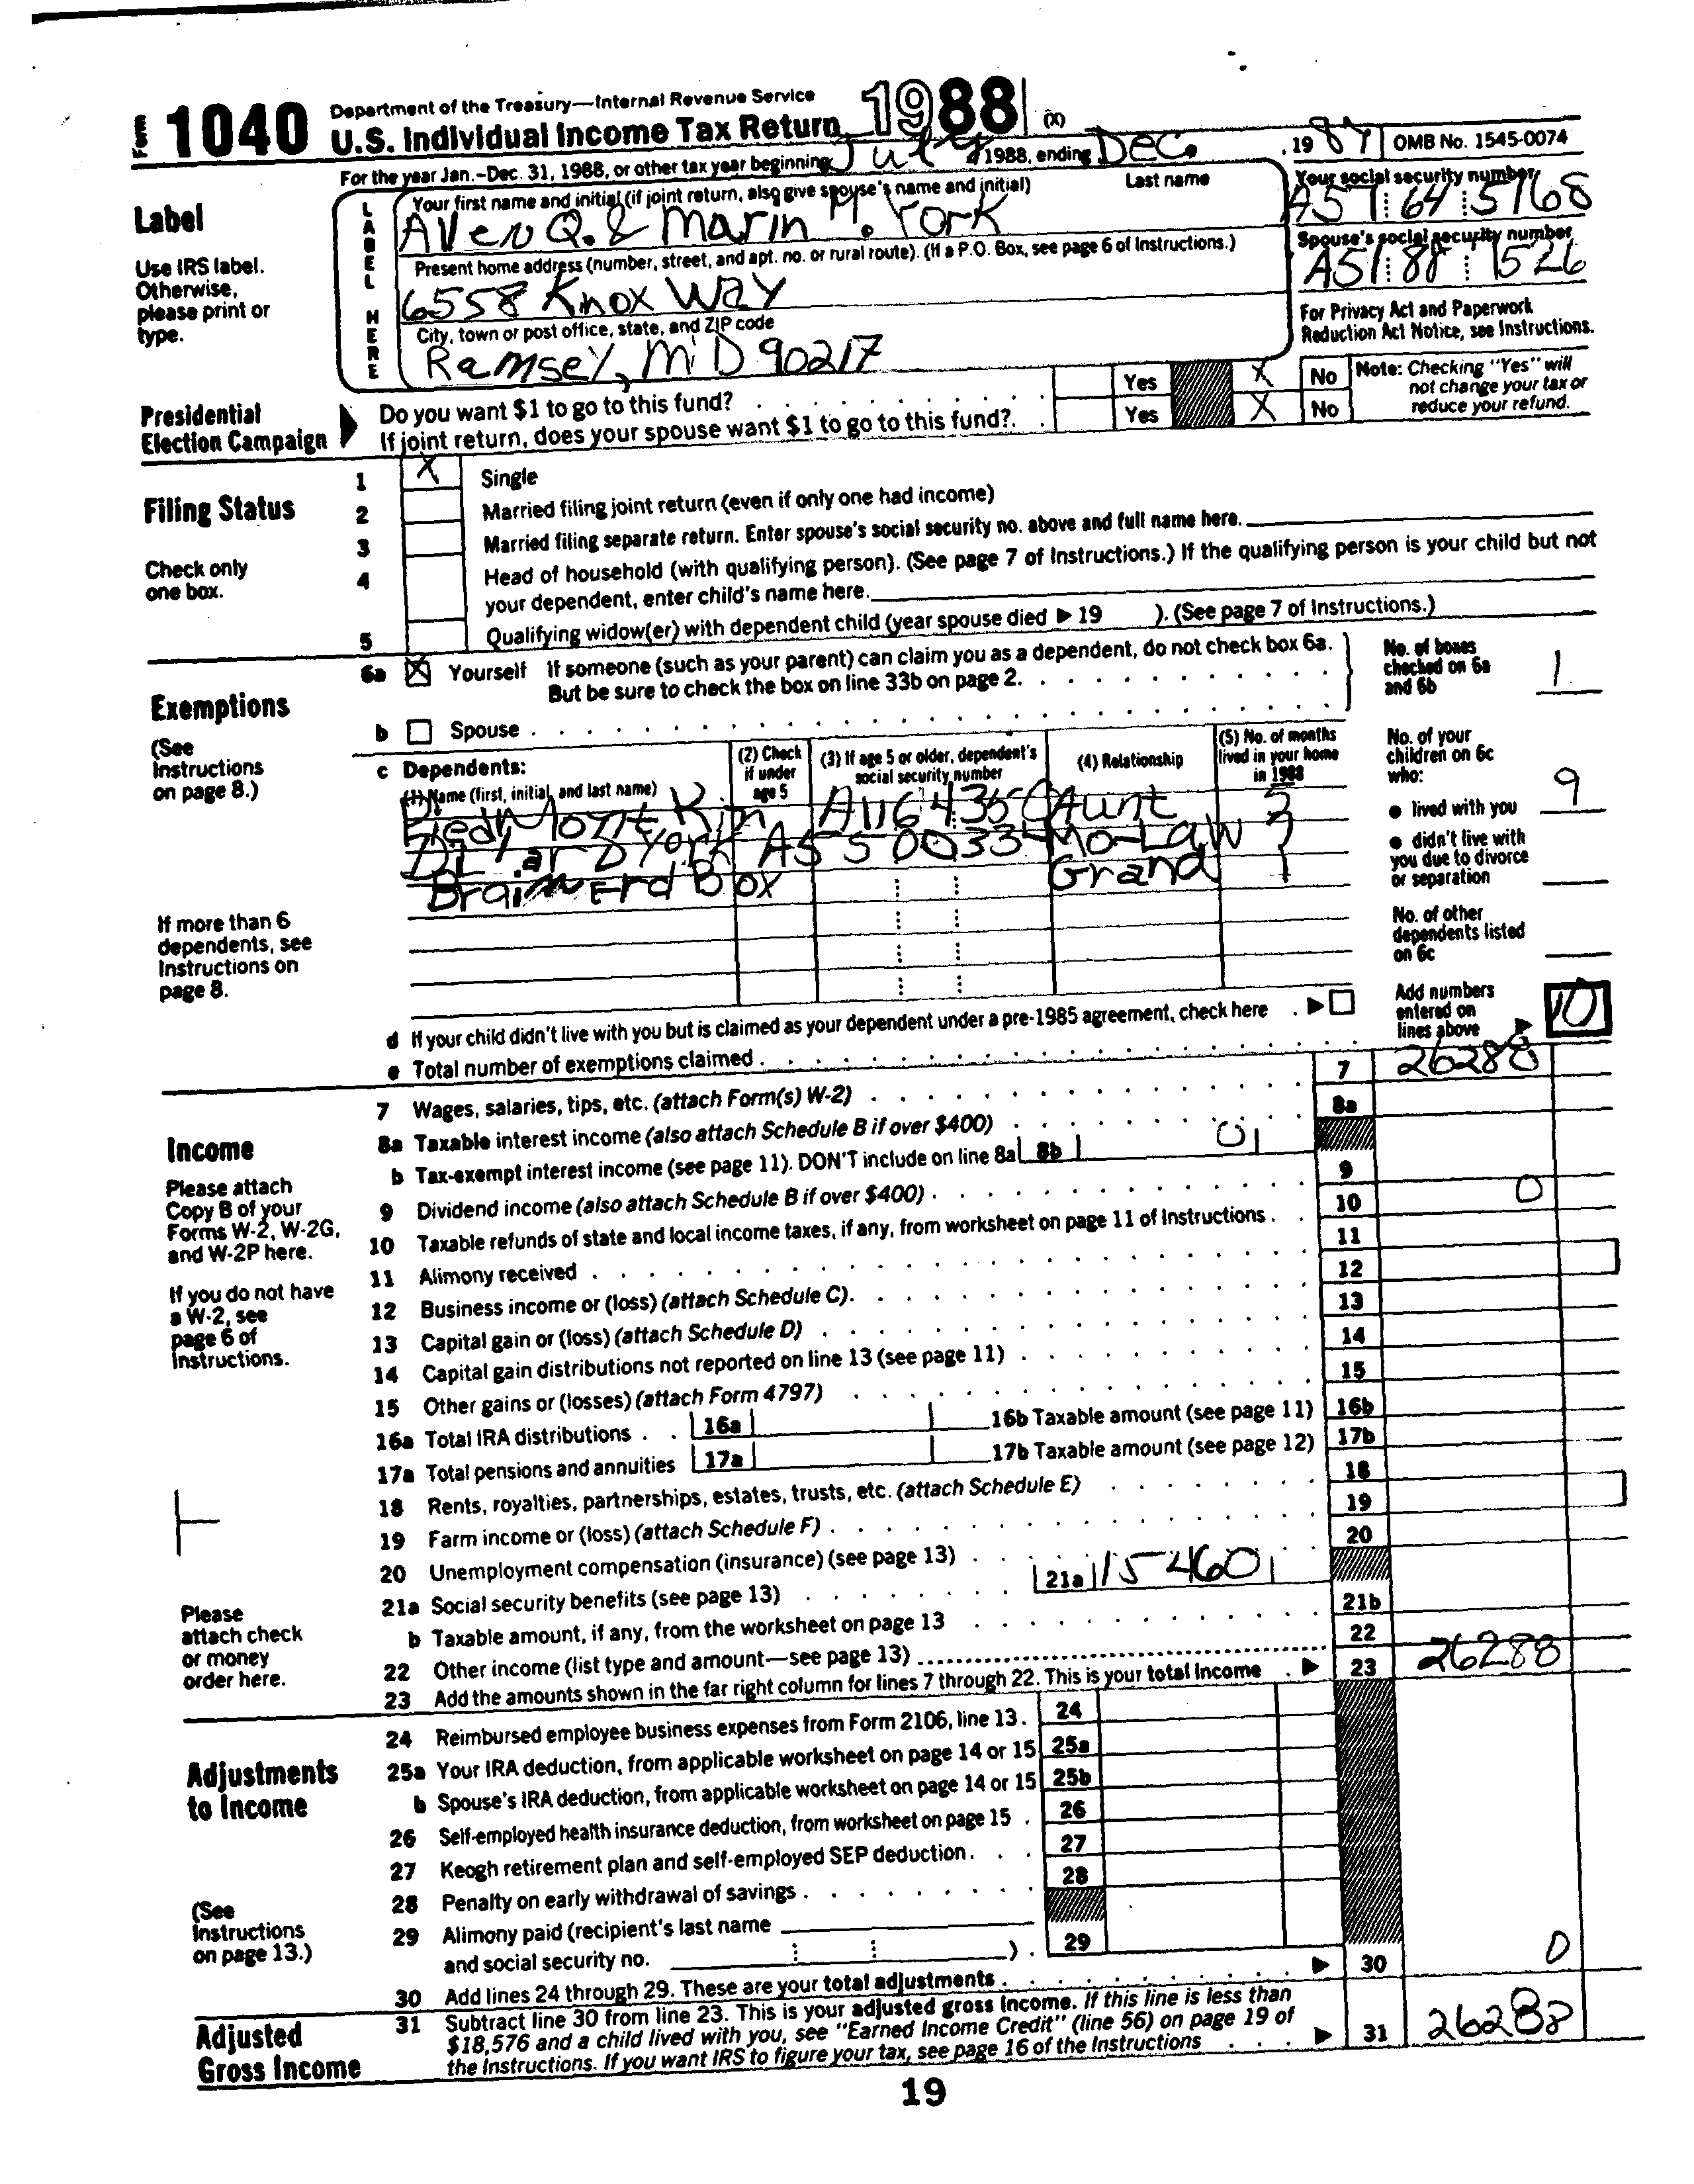 Form 1040 Department of the Treasury—Internal Revenue Service
U.S. Individual Income Tax Return 1988 (X)
For the year Jan.–Dec. 31, 1988, or other tax year beginning July 1988, ending Dec. , 19 87 OMB No. 1545-0074
Label
Use IRS label.
Otherwise,
please print or
type.
LABEL HERE
Your first name and initial (if joint return, also give spouse's name and initial) Last name
Q. & Marin York
Your social security number
A57 64 5768
Present home address (number, street, and apt. no. or rural route). (If a P.O. Box, see page 6 of Instructions.)
6558 Knox Way
Spouse's social security number
A51 88 7526
City, town or post office, state, and ZIP code
Ramsey, MD 90217
For Privacy Act and Paperwork
Reduction Act Notice, see Instructions.
Presidential
Election Campaign
Do you want $1 to go to this fund? Yes X No
If joint return, does your spouse want $1 to go to this fund?. Yes X No
Note: Checking "Yes" will
not change your tax or
reduce your refund.
Filing Status
Check only
one box.
1 X Single
2 Married filing joint return (even if only one had income)
3 Married filing separate return. Enter spouse's social security no. above and full name here.
4 Head of household (with qualifying person). (See page 7 of Instructions.) If the qualifying person is your child but not
your dependent, enter child's name here.
5 Qualifying widow(er) with dependent child (year spouse died ▶ 19 ). (See page 7 of Instructions.)
Exemptions
(See
Instructions
on page 8.)
If more than 6
dependents, see
Instructions on
page 8.
6a X Yourself If someone (such as your parent) can claim you as a dependent, do not check box 6a.
But be sure to check the box on line 33b on page 2.
b Spouse
No. of boxes
checked on 6a
and 6b 1
c Dependents:
(1) Name (first, initial, and last name)
(2) Check
if under
age 5
(3) If age 5 or older, dependent's
social security number
(4) Relationship
(5) No. of months
lived in your home
in 1988
Piedmont Kin Aunt
York Mo-Law
Box Grand 1
No. of your
children on 6c
who:
● lived with you 9
● didn't live with
you due to divorce
or separation
No. of other
dependents listed
on 6c
d If your child didn't live with you but is claimed as your dependent under a pre-1985 agreement, check here ▶
e Total number of exemptions claimed
Add numbers
entered on
lines above ▶ 10
Income
Please attach
Copy B of your
Forms W-2, W-2G,
and W-2P here.
If you do not have
a W-2, see
page 6 of
Instructions.
Please
attach check
or money
order here.
7 Wages, salaries, tips, etc. (attach Form(s) W-2) 7 26288
8a Taxable interest income (also attach Schedule B if over $400) 8a
b Tax-exempt interest income (see page 11). DON'T include on line 8a 8b 0
9 Dividend income (also attach Schedule B if over $400) 9
10 Taxable refunds of state and local income taxes, if any, from worksheet on page 11 of Instructions 10 0
11 Alimony received 11
12 Business income or (loss) (attach Schedule C). 12
13 Capital gain or (loss) (attach Schedule D) 13
14 Capital gain distributions not reported on line 13 (see page 11) 14
15 Other gains or (losses) (attach Form 4797) 15
16a Total IRA distributions 16a 16b Taxable amount (see page 11) 16b
17a Total pensions and annuities 17a 17b Taxable amount (see page 12) 17b
18 Rents, royalties, partnerships, estates, trusts, etc. (attach Schedule E) 18
19 Farm income or (loss) (attach Schedule F) 19
20 Unemployment compensation (insurance) (see page 13) 20
21a Social security benefits (see page 13) 21a 15460
b Taxable amount, if any, from the worksheet on page 13 21b
22 Other income (list type and amount—see page 13) 22
23 Add the amounts shown in the far right column for lines 7 through 22. This is your total income ▶ 23 26288
Adjustments
to Income
(See
Instructions
on page 13.)
24 Reimbursed employee business expenses from Form 2106, line 13. 24
25a Your IRA deduction, from applicable worksheet on page 14 or 15 25a
b Spouse's IRA deduction, from applicable worksheet on page 14 or 15 25b
26 Self-employed health insurance deduction, from worksheet on page 15 26
27 Keogh retirement plan and self-employed SEP deduction. 27
28 Penalty on early withdrawal of savings 28
29 Alimony paid (recipient's last name
and social security no. ) 29
30 Add lines 24 through 29. These are your total adjustments ▶ 30 0
Adjusted
Gross Income
31 Subtract line 30 from line 23. This is your adjusted gross income. If this line is less than
$18,576 and a child lived with you, see "Earned Income Credit" (line 56) on page 19 of
the Instructions. If you want IRS to figure your tax, see page 16 of the Instructions ▶ 31 26288
19